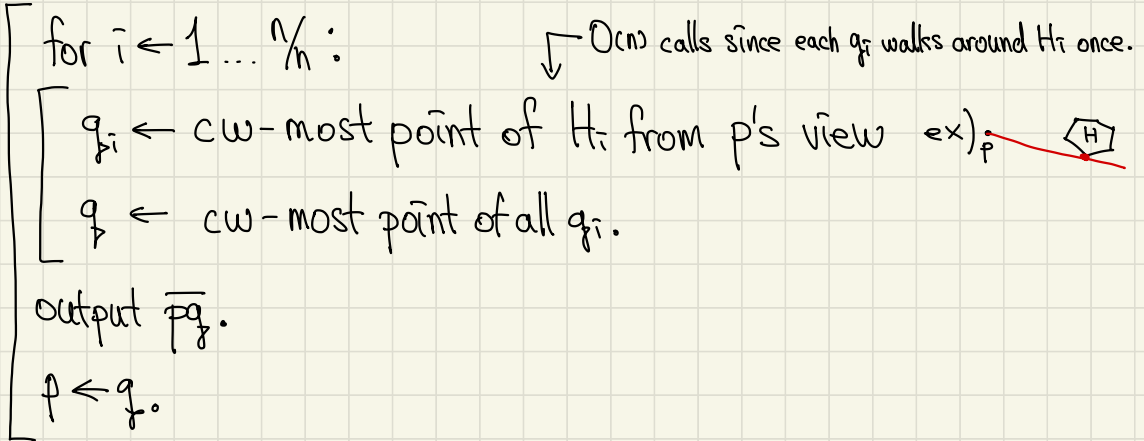 for i ← 1 ... n/h :
O(n) calls since each qi walks around Hi once.
qi ← cw-most point of Hi from p's view ex) p H
q ← cw-most point of all qi.
output pq.
p ← q.